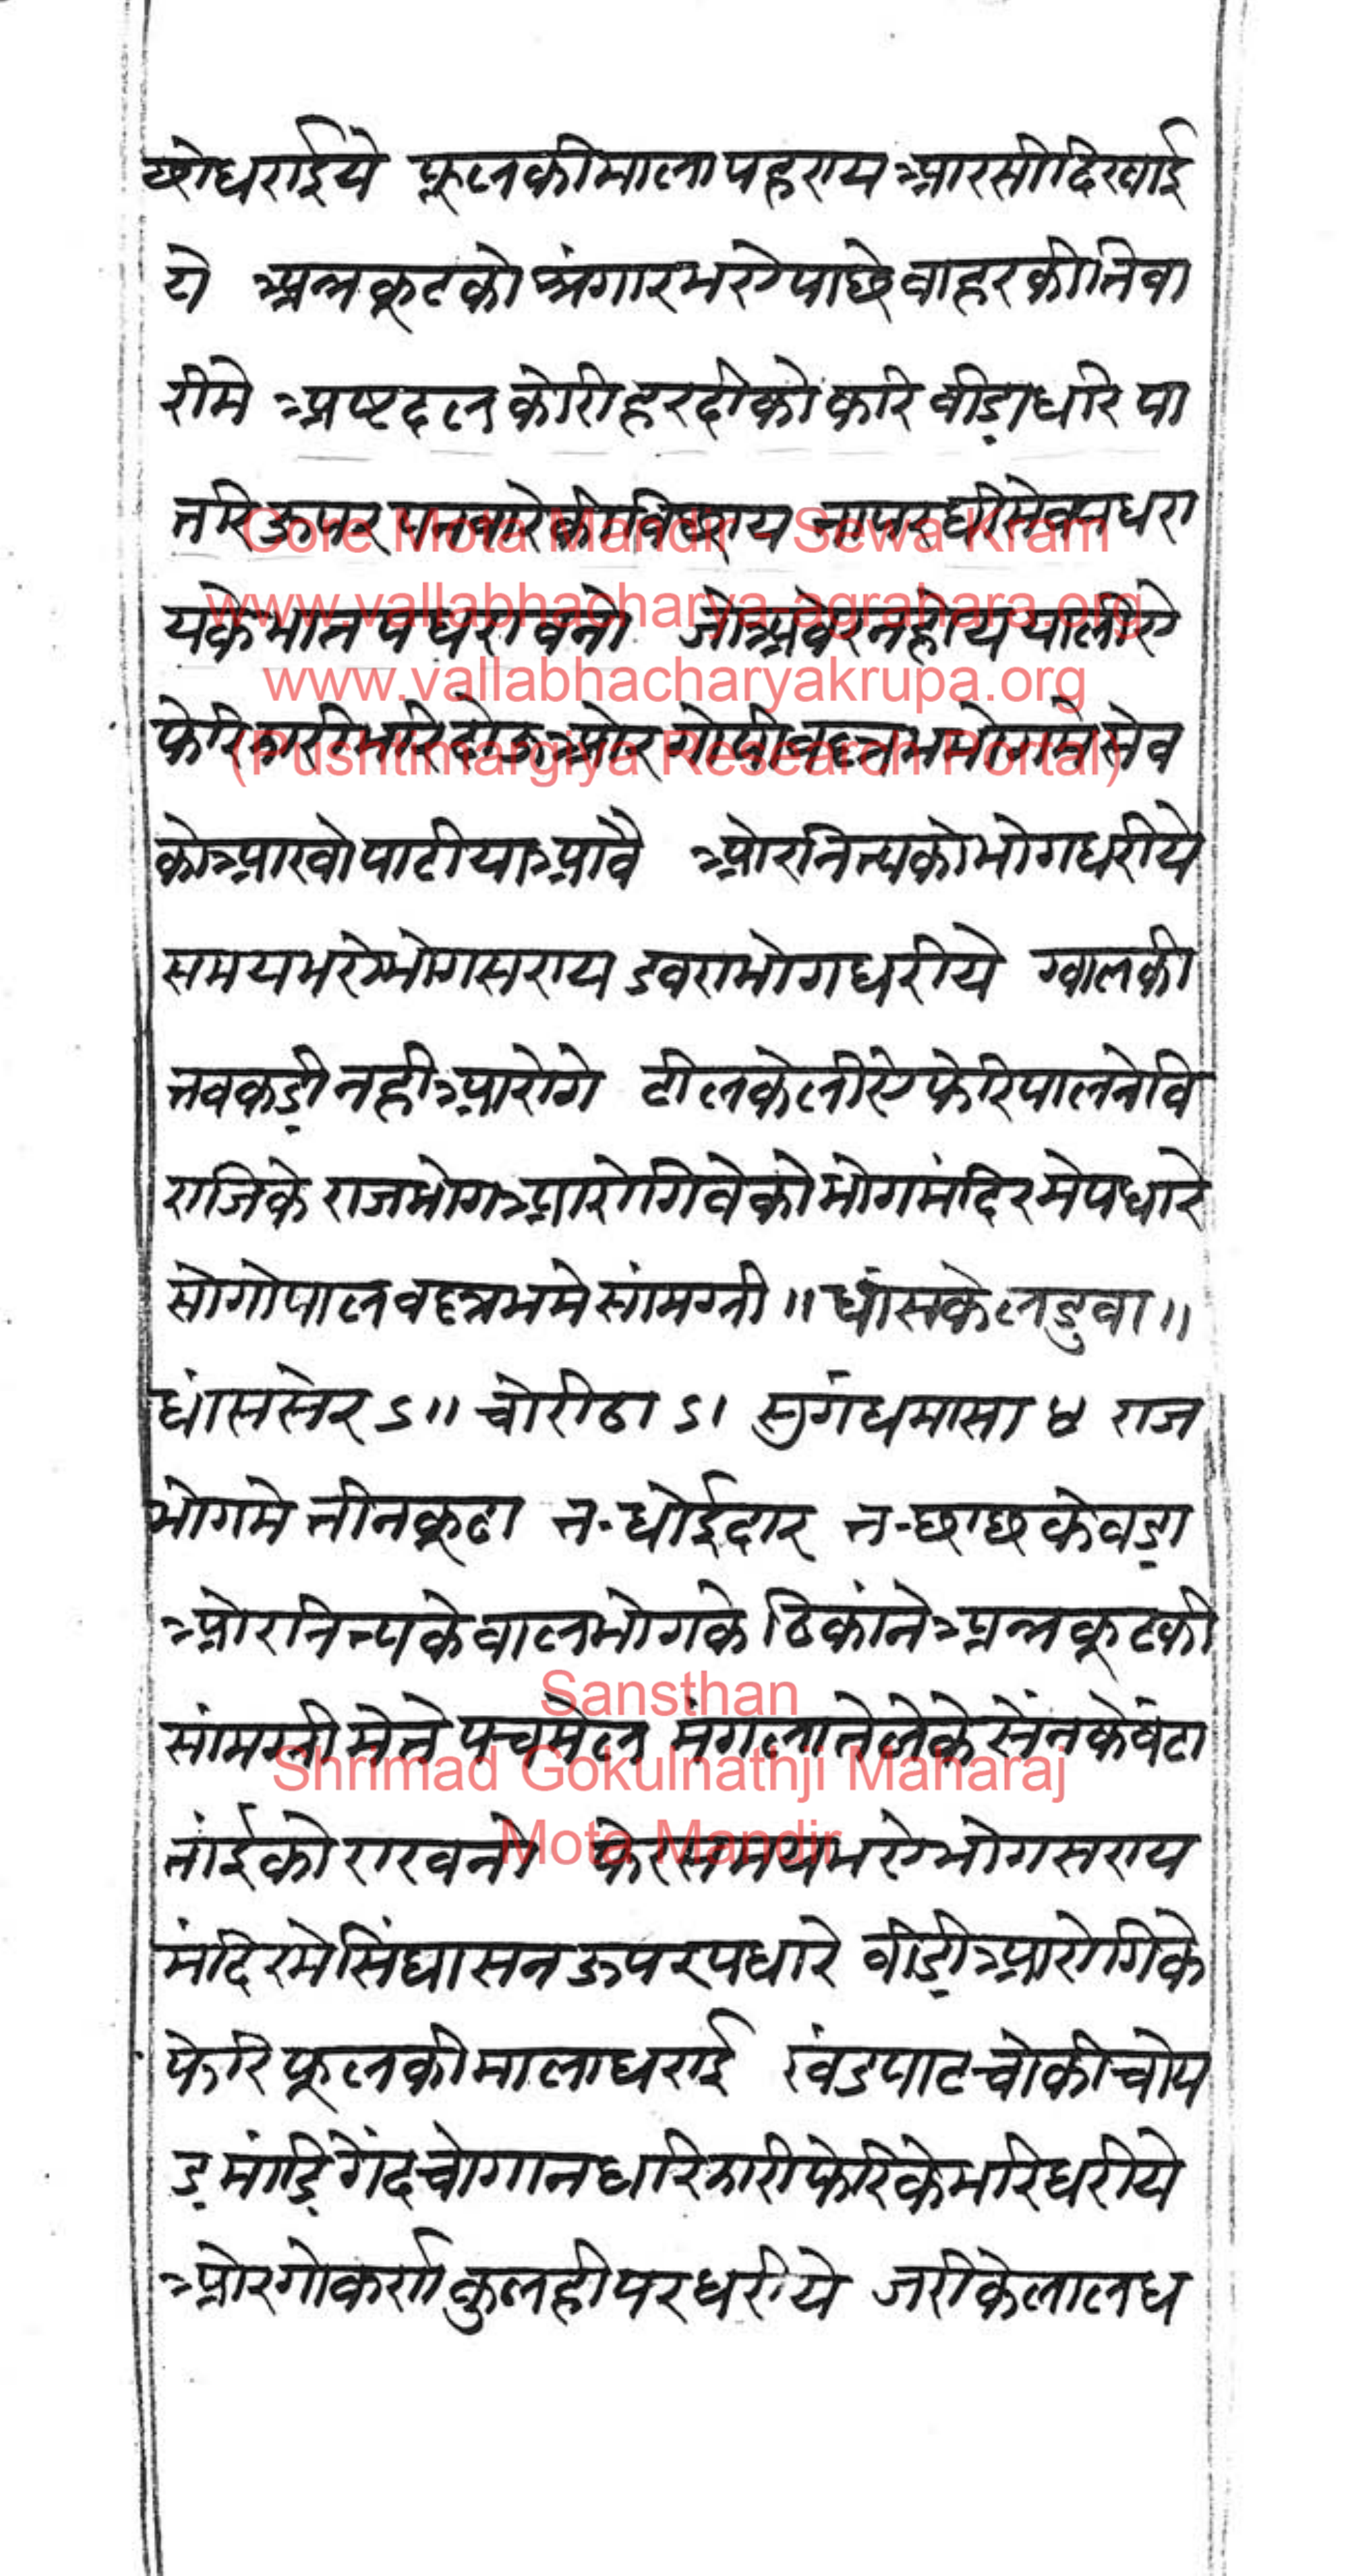 षोधराईये फूलकीमालापहराय आरसीदिखाई
ये अन्नकूटको श्रंगारभये पाछे बाहरकीतिवा
रीमे अष्टदल कोरीहरदीको करि बीड़ा धरि पा
तरि ऊपर धरा
यके भात पधरावनो जो अबेर नहोय यालीये
फेरि
को आखो पाटीया आवै ओर नित्यको भोगधरीये
समयभये भोगसराय डबराभोगधरीये ग्वालकी
तवकड़ी नही आरोगे टीलकेलीये फेरिपालनेबि
राजिके राजभोग आरोगिवेको भोगमंदिरमे पधारे
सो गोपालवल्लभमे सांमग्री ॥ घांसके लडुवा ॥
घांससेर ऽ॥ चोरीठा ऽ। सुगंधमासा ४ राज
भोगमे तीनकूढा त-धोईदार त-छाछकेवड़ा
ओर नित्यके बालभोगके ठिकांने अन्नकूटकी
सांमग्रीमेते पचमेल मंगलातेलेके सेंनकेवंटा
तांईको राखनो फेरसमयभये भोगसराय
मंदिरमे सिंघासनऊपर पधारे बीड़ी आरोगिके
फेरि फूलकीमालाधराई खंडपाटचोकीचोप
ड़ मांडि़ गेंदचोगानधरि झारीफेरिके भरिधरीये
ओर गोकर्ण कुलहीपरधरीये जरीकेलालध
Gore Mota Mandir - Sewa Kram
www.vallabhacharya-agrahara.org
www.vallabhacharyakrupa.org
(Pushtimargiya Research Portal)
Sansthan
Shrimad Gokulnathji Maharaj
Mota Mandir